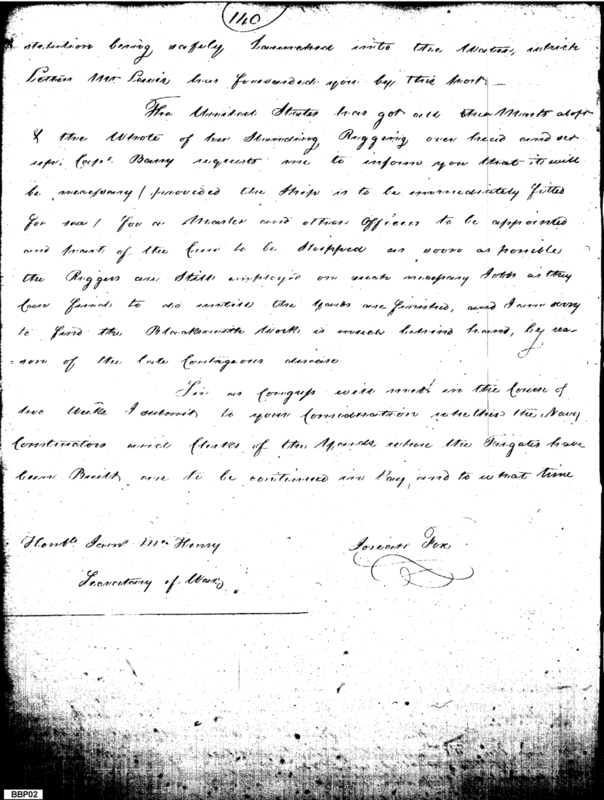 140
stitution being safely Launched into the Water, which
Letter Mr Lewis has forwarded you by this Post —
The United States has got all her Masts aloft
& the Whole of her Standing Rigging over head and set
up; Capt. Barry requests me to inform you that it will
be necessary / provided the Ship is to be immediately fitted
for sea / for a Master and other Officers to be appointed
and part of the Crew to be Shipped as soon as possible
the Riggers are Still employed on such necessary Jobs as they
Can find to do untill the Yards are finished, and I am sorry
to find the Blacksmiths Work is much behind hand, by rea-
=son of the late Contageous disease
Sir as Congress will meet in the Course of
two Weeks I submit to your Consideration whether the Navy
Constructors and Clerks of the Yards where the Frigates have
been Built are to be continued in Pay, and to what time
Honble James McHenry
Secretary of War
Josiah Fox
BBP02